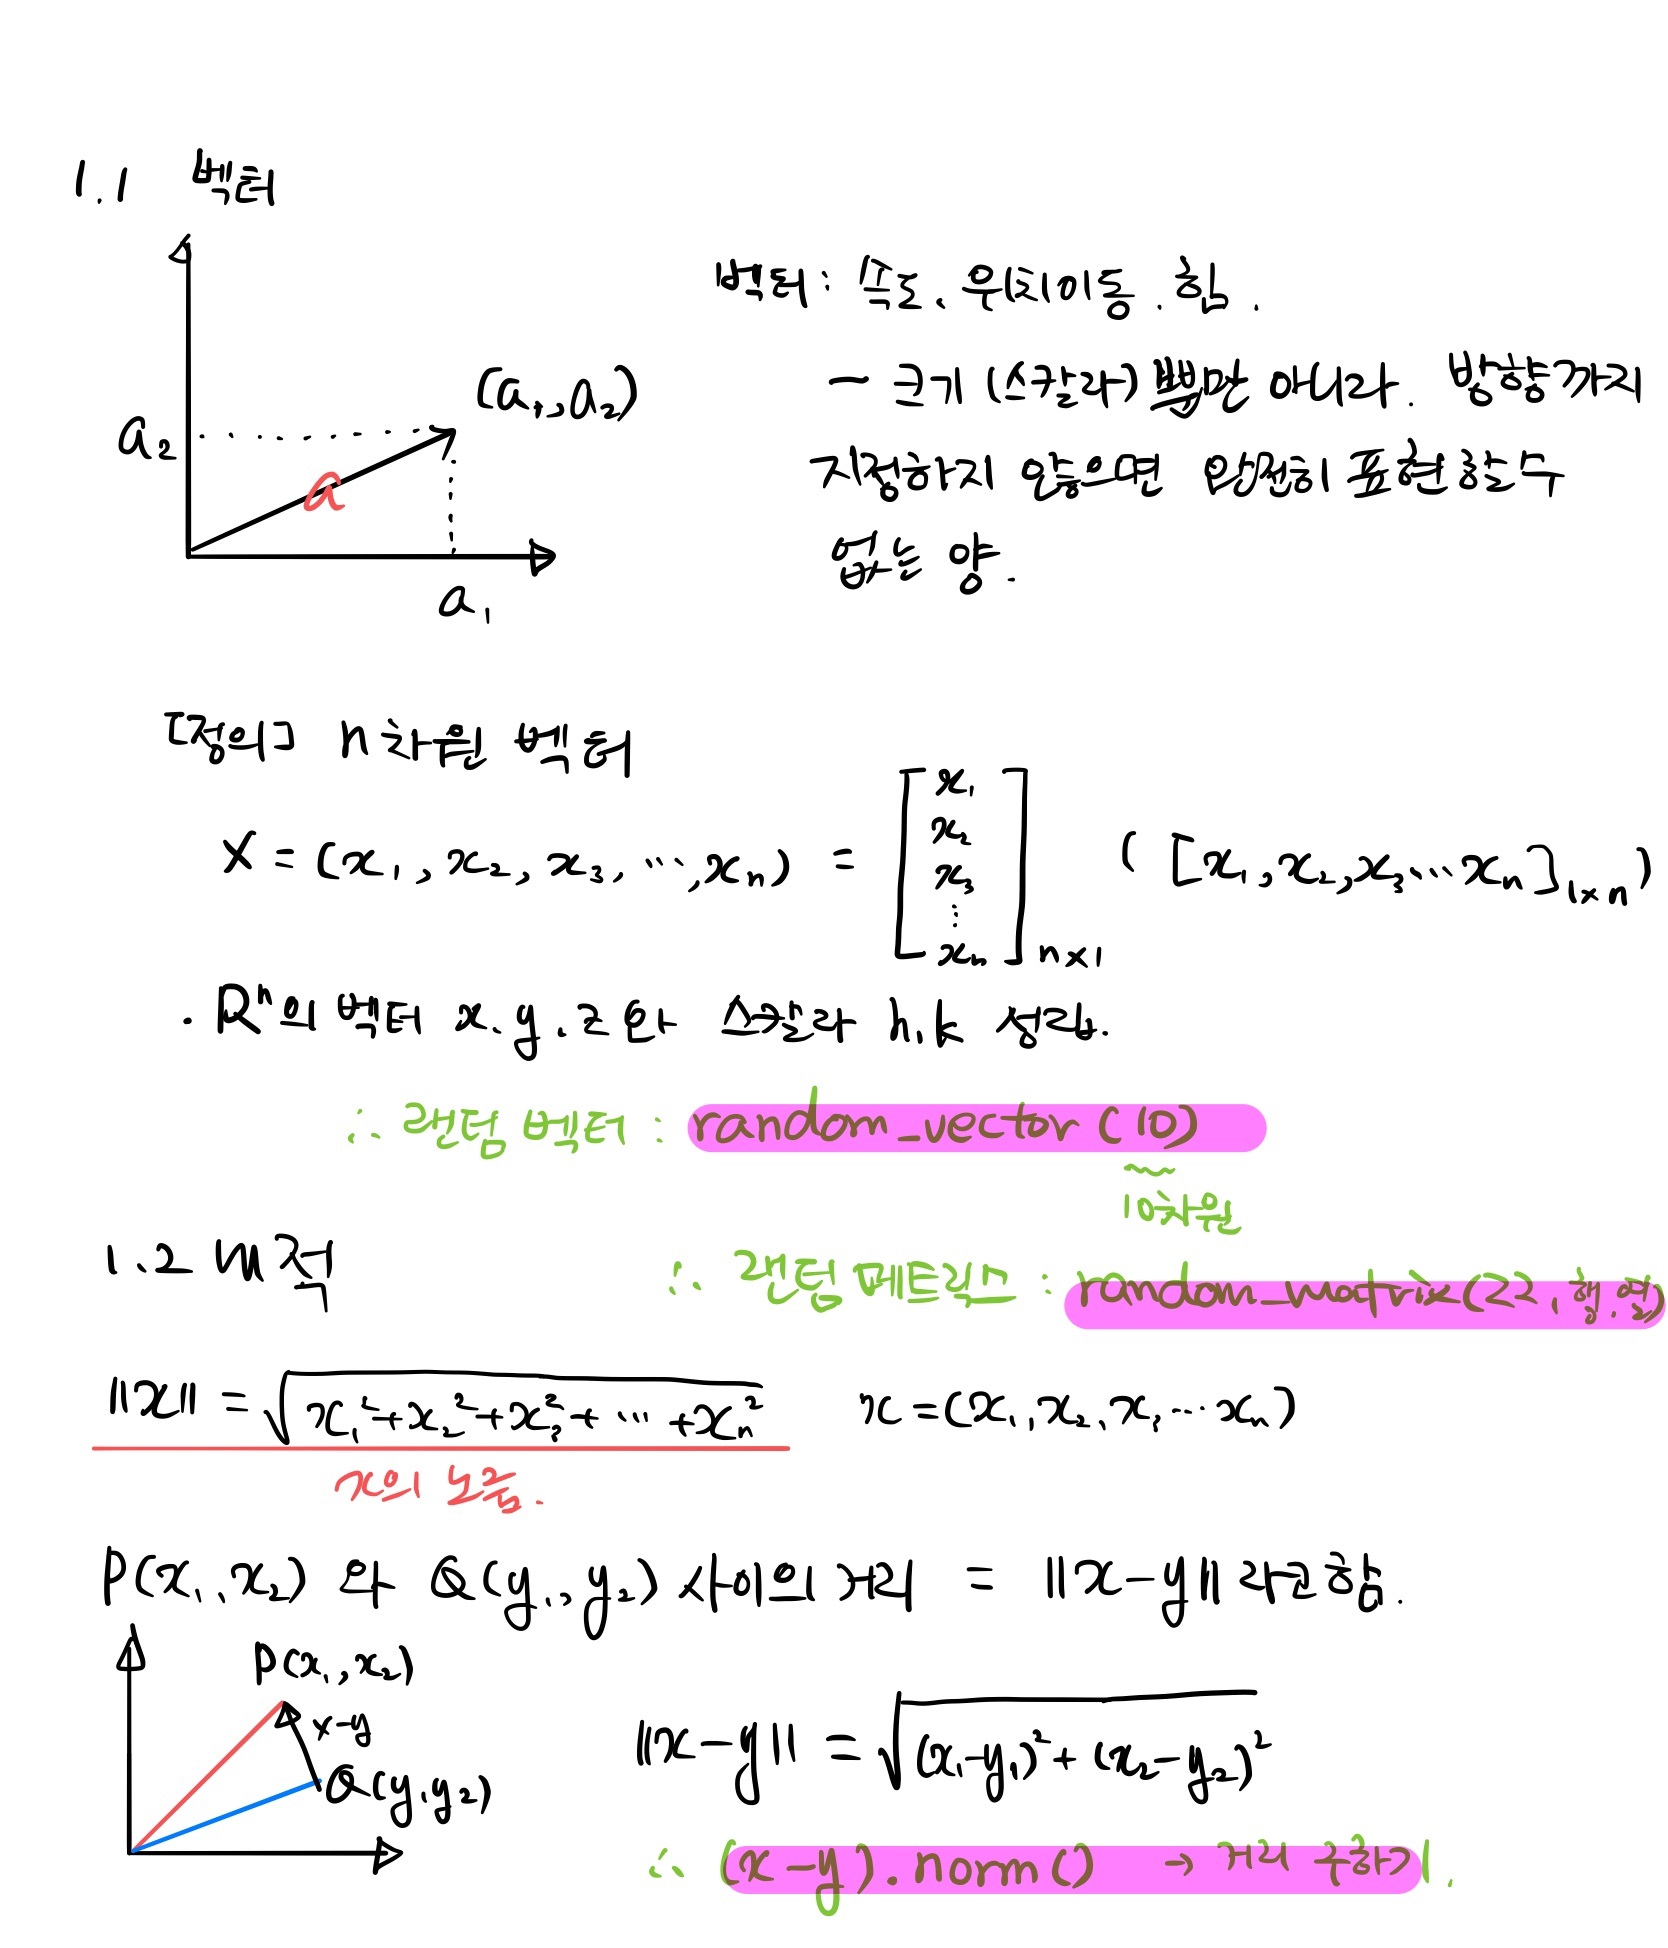 1.1 벡터
벡터 : 속도, 위치이동, 힘.
(a₁, a₂)
- 크기 (스칼라) 뿐만 아니라. 방향까지
a₂
a
지정하지 않으면 완전히 표현할 수
없는 양.
a₁
[정의] n차원 벡터
X = (x₁, x₂, x₃, ⋯, xₙ) = [x₁ x₂ x₃ ⋮ xₙ]ₙ×₁ ( [x₁, x₂, x₃ ⋯ xₙ]₁×ₙ )
. Rⁿ의 벡터 x, y, z 와 스칼라 h, k 성립.
∴ 랜덤 벡터 : random_vector (10)
10차원
1.2 내적
∴ 랜덤 메트릭스 : random_matrix(ZZ, 행, 열)
||x|| = √(x₁² + x₂² + x₃² + ⋯ + xₙ²) x = (x₁, x₂, x₃ ⋯ xₙ)
x의 노름.
P(x₁, x₂) 와 Q(y₁, y₂) 사이의 거리 = ||x-y|| 라고 함.
P(x₁, x₂)
x-y
||x-y|| = √((x₁-y₁)² + (x₂-y₂)²)
Q(y₁, y₂)
∴ (x-y).norm() → 거리 구하기.